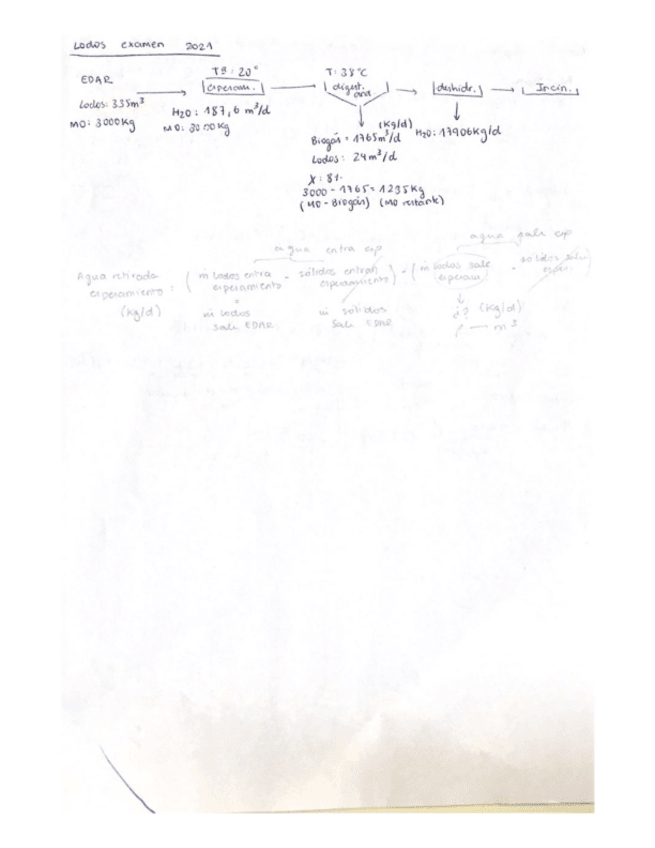 Lodos examen 2021
EDAR
Lodos: 335m³
MO: 3000Kg
TS: 20°
espesam.
H₂O: 187,6 m³/d
MO: 3000Kg
T: 38°C
digest. ana
(Kg/d)
Biogás = 1765m³/d
Lodos: 24m³/d
X: 81.
3000 - 1765 = 1235Kg
(MO - Biogás) (MO restante)
deshidr.
H₂O: 17906Kg/d
Incin.
agua entra esp
agua sale esp
Agua retirada espesamiento: ( ṁ lodos entra espesamiento - sólidos entran espesamiento ) - ( ṁ lodos sale espesam - sólidos
(Kg/d)
=
ṁ lodos sale EDAR
ṁ sólidos sale EDAR
¿? (Kg/d)
ρ — m³